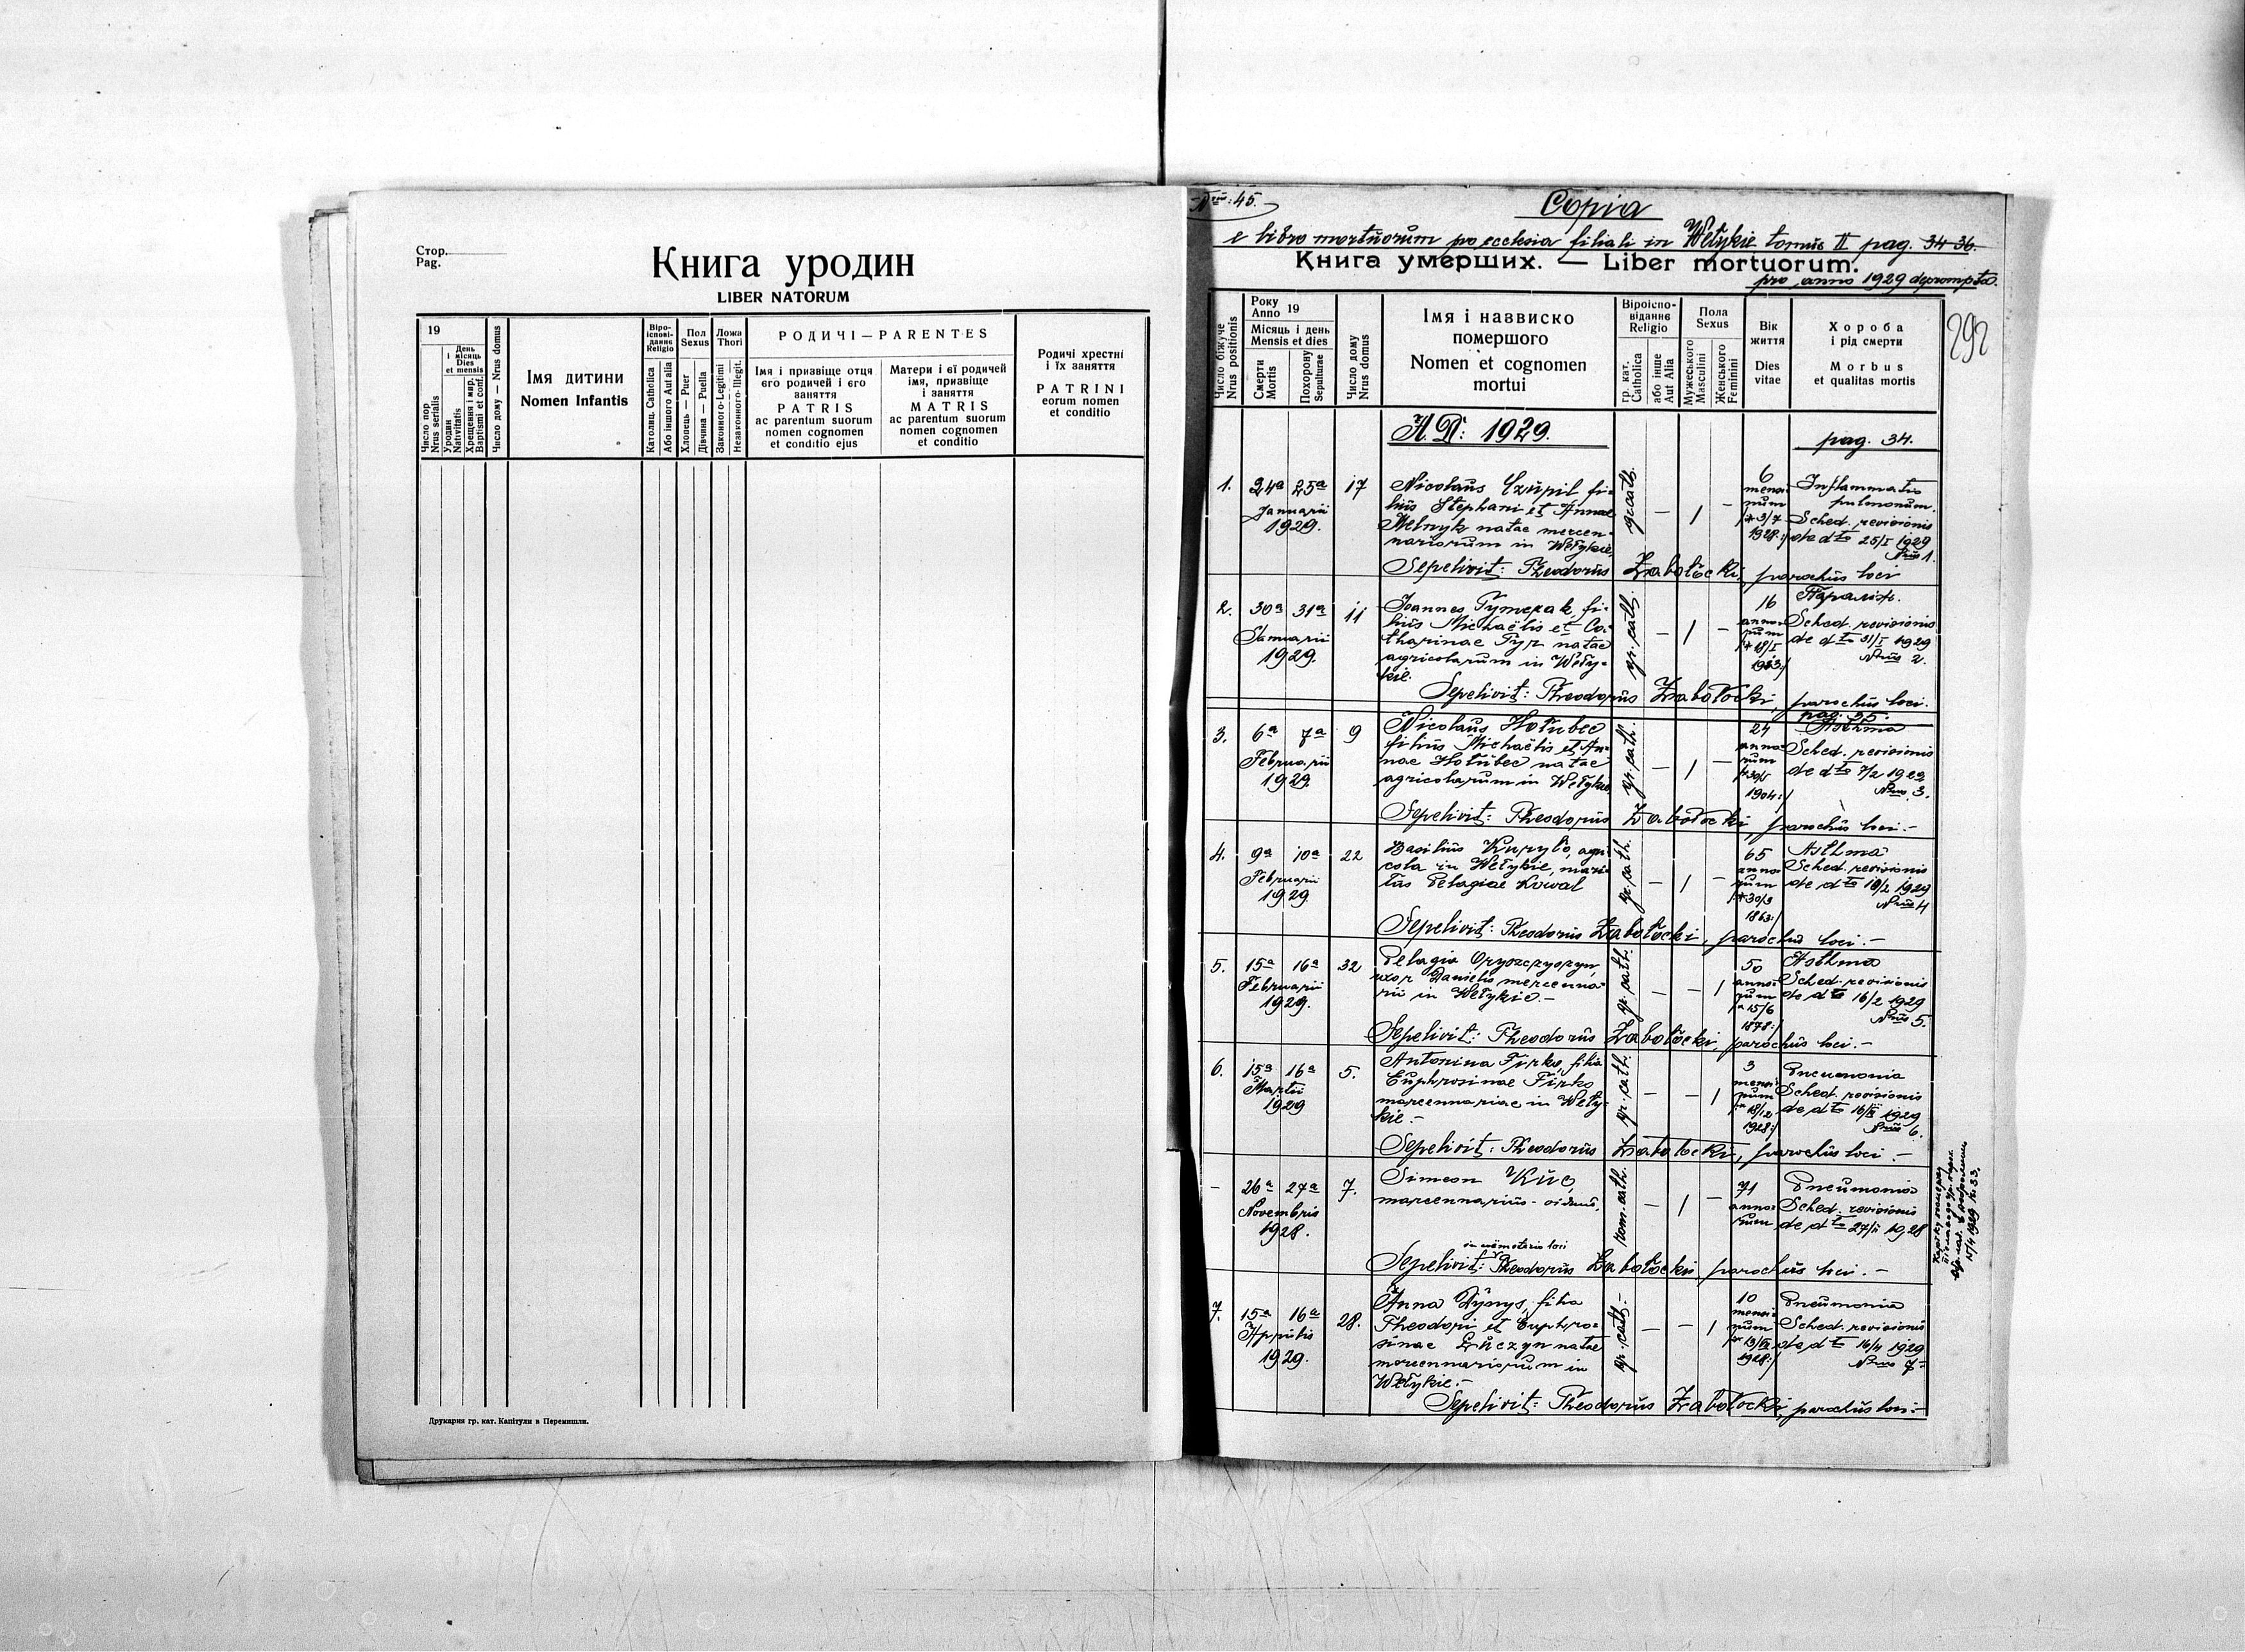 Стор.
Pag.
Книга уродин
LIBER NATORUM
19
День
і місяць
Dies
et mensis
Число пор
Nrus serialis
Уродин
Nativitatis
Хрещення і мир.
Baptismi et conf.
Число дому — Nrus domus
Імя дитини
Nomen Infantis
Віро-
ісповi-
даннє
Religio
Католиц. Catholica
Або іншого Aut alia
Пол
Sexus
Хлопець — Puer
Дівчина — Puella
Ложа
Thori
Законного-Legitimi
Незаконного-Illegit.
РОДИЧІ — PARENTES
Імя і призвіще отця
єго родичей і єго
заняття
PATRIS
ac parentum suorum
nomen cognomen
et conditio ejus
Матери і єї родичей
імя, призвіще
і заняття
MATRIS
ac parentum suorum
nomen cognomen
et conditio
Родичі хрестні
і їх заняття
PATRINI
eorum nomen
et conditio
Друкарня гр. кат. Капітули в Перемишли.
Nrus: 45.
Copia
e libro mortuorum pro ecclesia filiali in Wełykie tomus II pag. 34-36.
Книга умерших. — Liber mortuorum.
pro anno 1929 deprompta.
292
Число біжуче
Nrus positionis
Року
Anno 19
Місяць і день
Mensis et dies
Смерти
Mortis
Похорону
Sepulturae
Число дому
Nrus domus
Імя і назвиско
помершого
Nomen et cognomen
mortui
Віроіспо-
віданнє
Religio
гр. кат.
Catholica
або інше
Aut Alia
Пола
Sexus
Мужеського
Masculini
Женського
Feminini
Вік
життя
Dies
vitae
Хороба
і рід смерти
Morbus
et qualitas mortis
A. D: 1929.
pag. 34.
1. 24a 25a Januarii 1929. 17
Nicolaus Czupil fi-
lius Stephani et Annae
Melnyk natae mercen-
nariorum in Wełykie.
gr.cath. — 1 —
6 mensium * 3/7 1928:/
Inflammatio
pulmonum.
Sched. revisionis
de dto 25/I 1929
Nrus 1.
Sepelivit: Theodorus Zabołocki, parochus loci
2. 30a 31a Januarii 1929. 11
Joannes Tymczak, fi-
lius Michaëlis et Ca-
tharinae Pyr natae
agricolarum in Weły-
kie.
gr. cath. — 1 —
16 annorum
Sched. revisionis
de dto 31/I 1929
Nrus 2.
Sepelivit: Theodorus Zabołocki, parochus loci.
pag. 35.
3. 6a 7a Februarii 1929. 9
Nicolaus Hołubec
filius Michaëlis et An-
nae Hołubec natae
agricolarum in Wełykie
gr. cath. — 1 —
24 annorum 1904:/
Asthma
Sched. revisionis
de dto 7/2 1929
Nrus 3.
Sepelivit: Theodorus Zabołocki, parochus loci.—
4. 9a 10a Februarii 1929 22
Basilius Kuryło, agri-
cola in Wełykie, mari-
tus Pelagiae Kowal
gr. cath. — 1 —
65 annorum * 30/3 1863:/
Asthma
Sched. revisionis
de dto 10/2 1929
Nrus 4
Sepelivit: Theodorus Zabołocki, parochus loci.—
5. 15a 16a Februarii 1929. 32
Pelagia Oryszczyszyn,
uxor Danielis mercenna-
rii in Wełykie.—
gr. cath. — — 1
50 annorum * 15/6 1878:/
Asthma
Sched. revisionis
de dto 16/2 1929
Nrus 5.
Sepelivit: Theodorus Zabołocki, parochus loci.—
6. 15a 16a Martii 1929 5.
Antonina Firko, filia
Euphrosinae Firko
mercennariae in Weły-
kie.—
gr. cath. — — 1
3 mensium * 18/12 1928:/
Pneumonia
Sched. revisionis
de dto 16/III 1929
Nrus 6.
Sepelivit: Theodorus Zabołocki, parochus loci.—
— 26a 27a Novembris 1928. 7.
Simeon Kuc,
mercennarius - viduus,
rom. cath. — 1 —
71 annorum
Pneumonia
Sched. revisionis
de dto 27/11 1928
in coemeterio loci
Sepelivit: Theodorus Zabołocki parochus loci.—
15/4 1929 N: 33.
7. 15a 16a Aprilis 1929. 28.
Anna Dżorys, filia
Theodori et Euphro-
sinae Łuczyn natae
mercennariorum in
Wełykie.—
gr. cath.— — — 1
10 mensium 1928:/
Pneumonia
Sched. revisionis
de dto 16/4 1929
Nrus 7.
Sepelivit: Theodorus Zabołocki, parochus loci.—